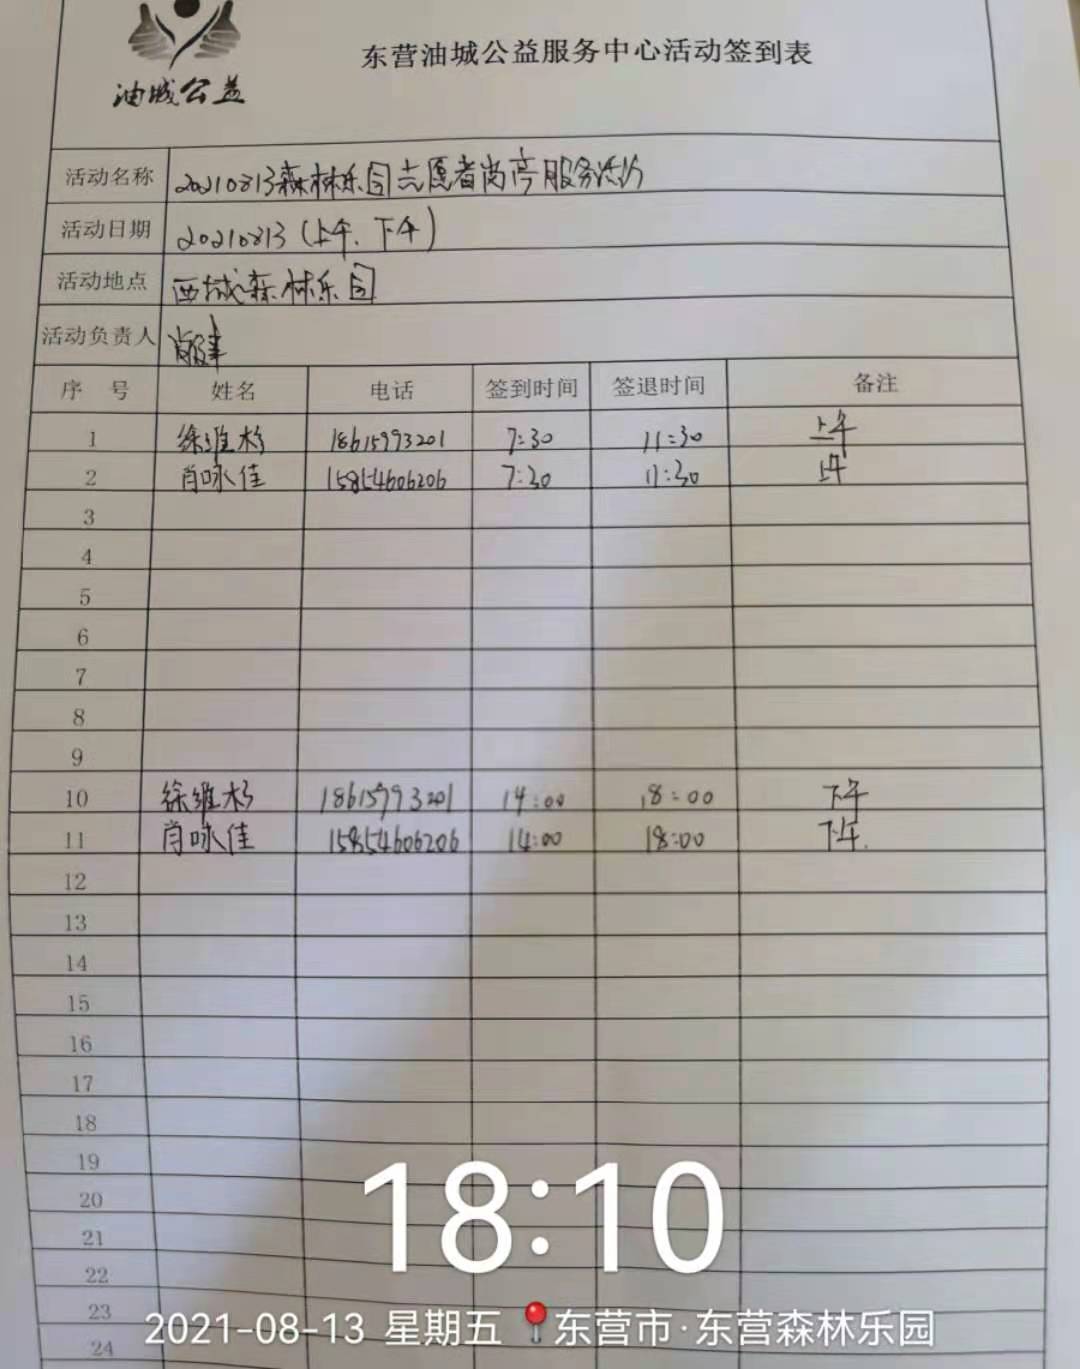 油城公益
东营油城公益服务中心活动签到表
活动名称 20210813森林乐园志愿者岗亭服务活动
活动日期 20210813（上午、下午）
活动地点 西城森林乐园
活动负责人
序 号 姓名 电话 签到时间 签退时间 备注
1 徐维杉 18615993201 7:30 11:30 上午
2 肖咏佳 15854606206 7:30 11:30 上午
3
4
5
6
7
8
9
10 徐维杉 18615993201 14:00 18:00 下午
11 肖咏佳 15854606206 14:00 18:00 下午.
12
13
14
15
16
17
18
19
20
21
22
23
24
18:10
2021-08-13 星期五 东营市·东营森林乐园